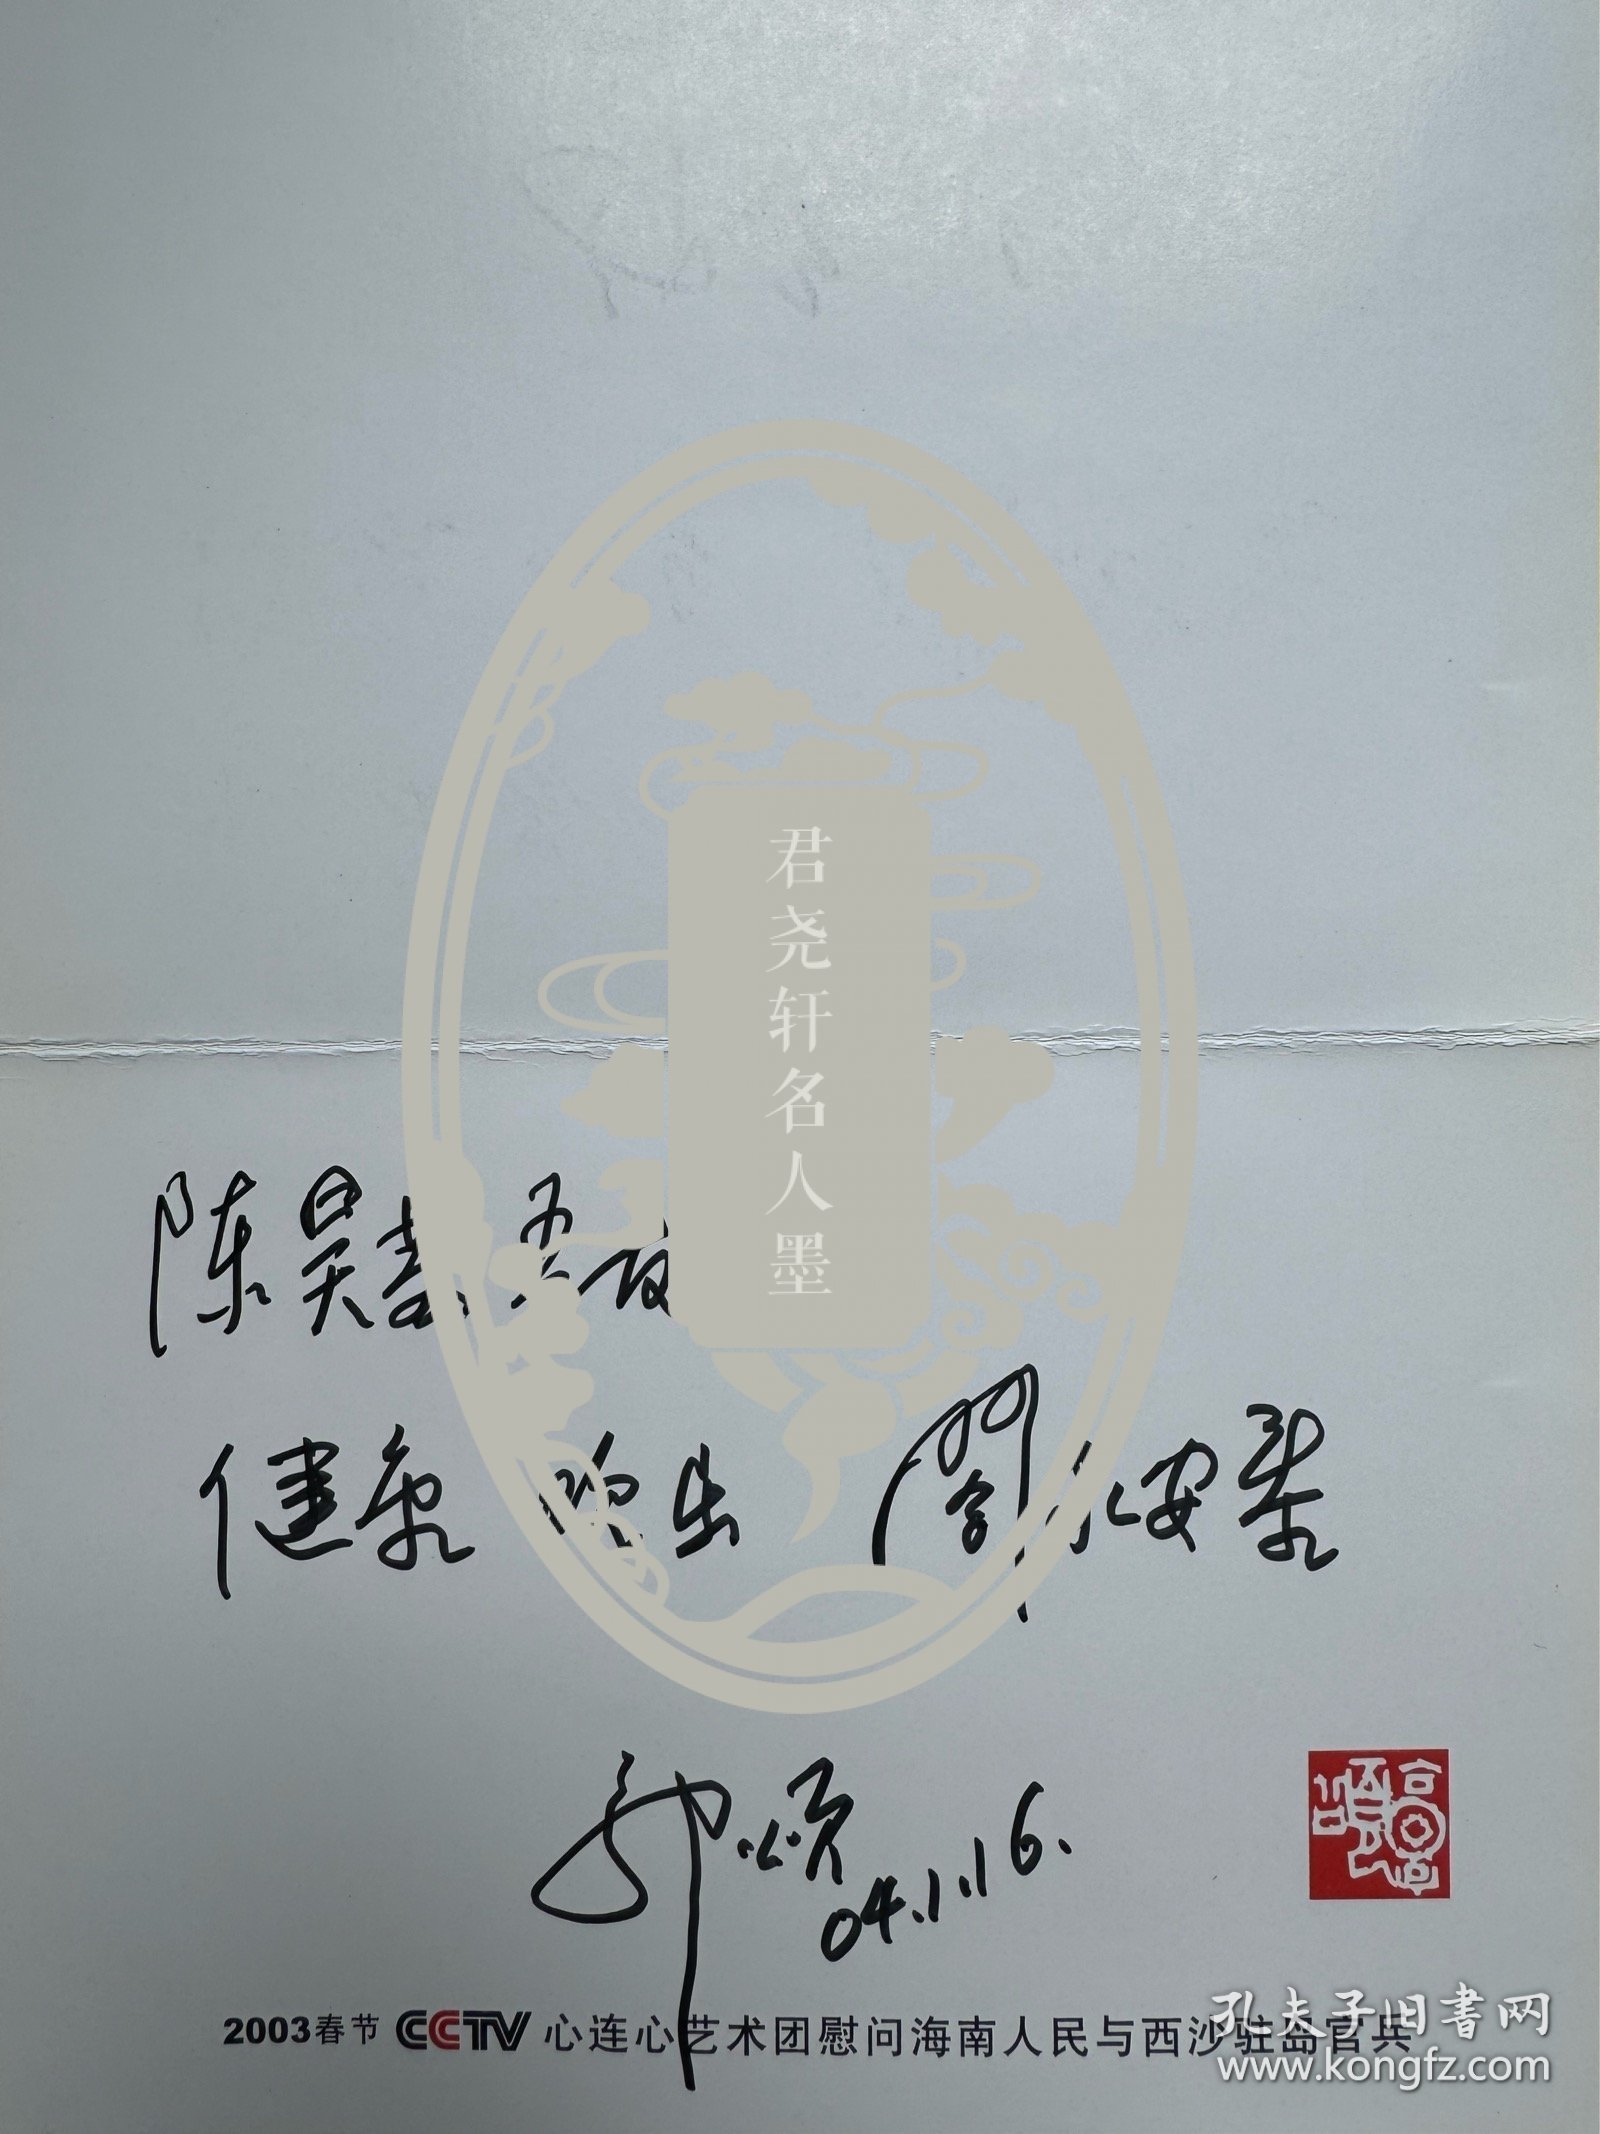 君尧轩名人墨
陈昊
健康 欢乐 阖家安康
郭颂
04.1.16.
2003春节 CCTV 心连心艺术团慰问海南人民与西沙驻岛官兵
孔夫子旧书网
www.kongfz.com